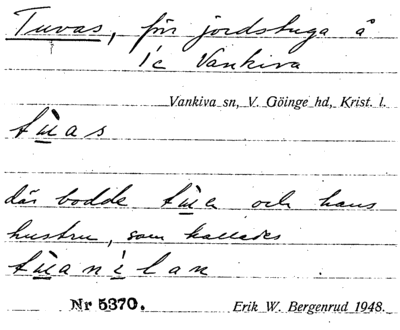 Tuvas, för jordstuga å
1/c Vankiva
Vankiva sn, V. Göinge hd, Krist. l.
tɯas
där bodde tɯa och hans
hustru, som kallades
tɯanilan
Nr 5370. Erik W. Bergenrud 1948.